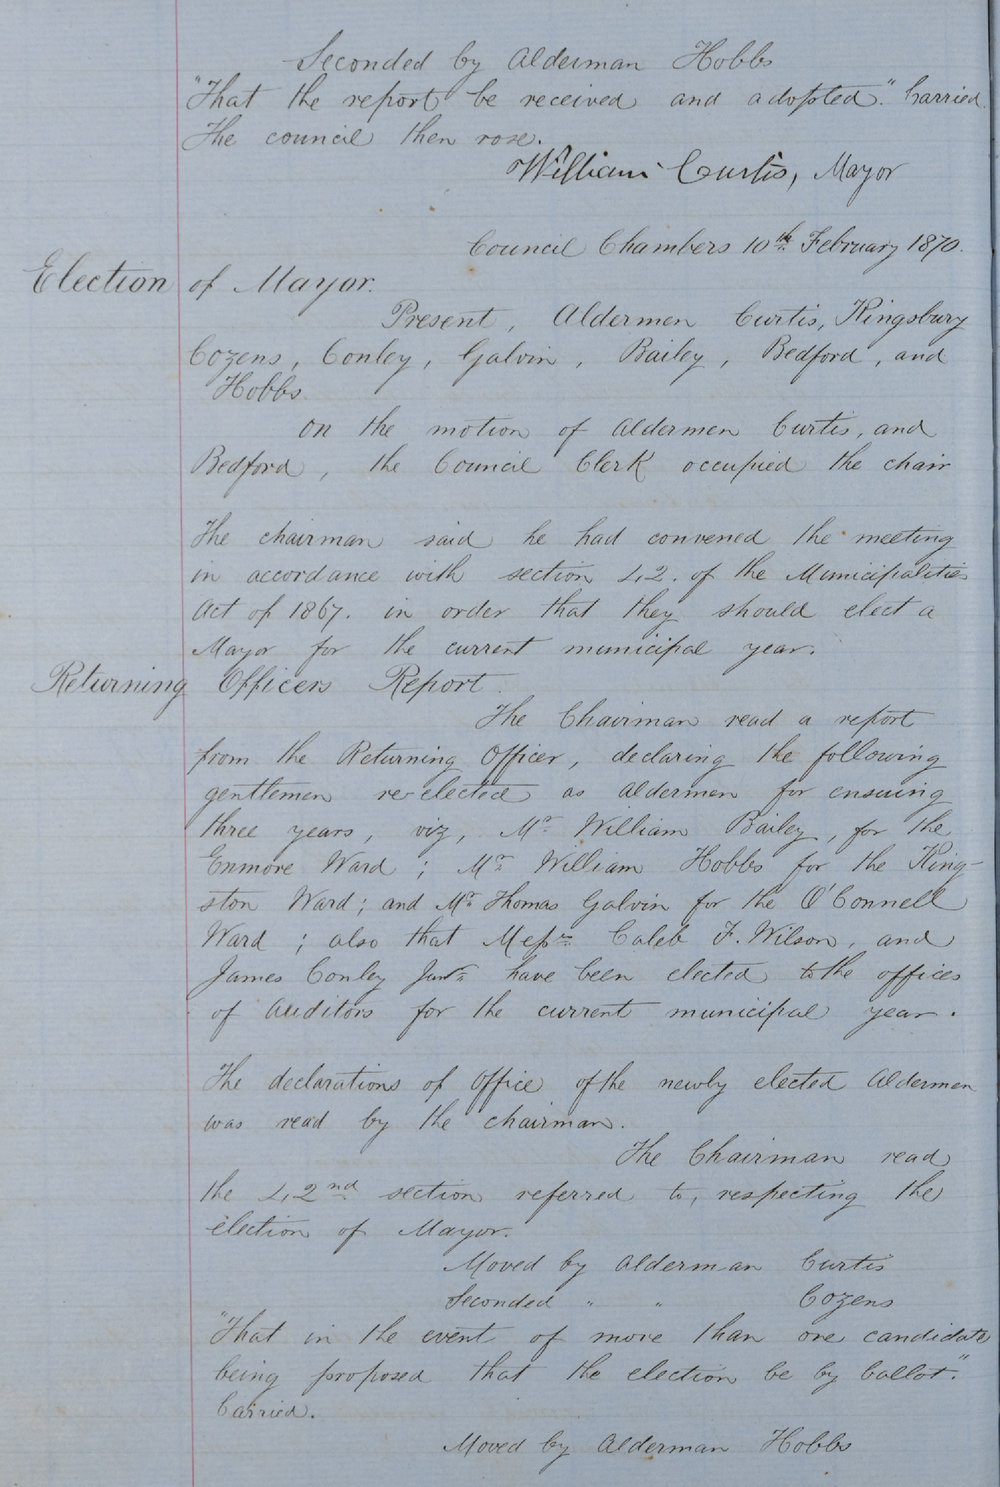 Seconded by Alderman Hobbs
"That the report be received and adopted." Carried.
The council then rose.
William Curtis, Mayor
Council Chambers 10th February 1870.
Election of Mayor.
Present, Aldermen Curtis, Kingsbury
Cozens, Conley, Galvin, Bailey, Bedford, and
Hobbs.
On the motion of Aldermen Curtis, and
Bedford, the Council Clerk occupied the chair
The chairman said he had convened the meeting
in accordance with section 42. of the Municipalities
Act of 1867. in order that they should elect a
Mayor for the current municipal year.
Returning Officers Report.
The Chairman read a report
from the Returning Officer, declaring the following
gentlemen re-elected as Aldermen for ensuing
three years, viz, Mr William Bailey, for the
Enmore Ward; Mr William Hobbs for the King-
ston Ward; and Mr Thomas Galvin for the O'Connell
Ward; also that Messrs Caleb F. Wilson, and
James Conley Junr have been elected to the offices
of Auditors for the current municipal year.
The declarations of Office of the newly elected Aldermen
was read by the chairman.
The Chairman read
the 42nd section referred to, respecting the
election of Mayor.
Moved by Alderman Curtis
Seconded " " Cozens
"That in the event of more than one candidate
being proposed that the election be by ballot."
Carried.
Moved by Alderman Hobbs